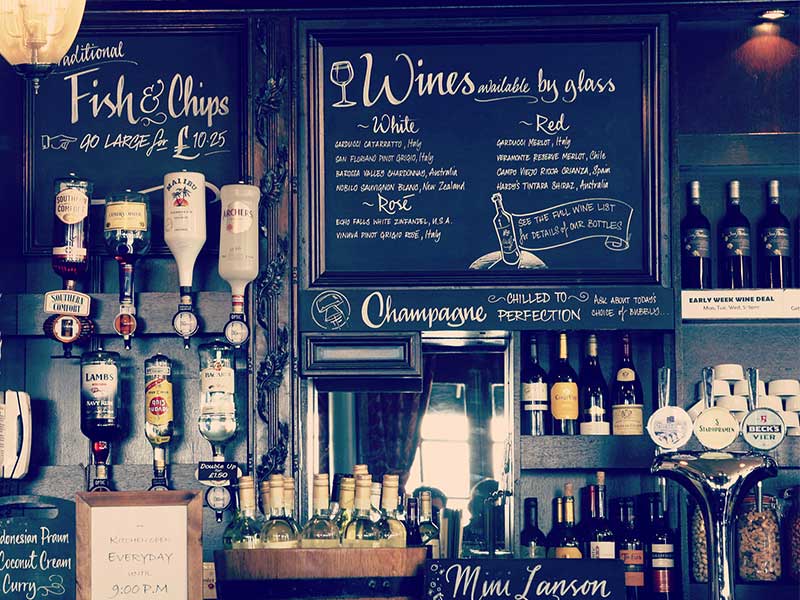 Traditional
Fish & Chips
GO LARGE for £10.25
Wines available by glass
~White
CARDUCCI CATARRATTO, Italy
SAN FLORIANO PINOT GRIGIO, Italy
BAROCCA VALLEY CHARDONNAY, Australia
NOBILO SAUVIGNON BLANC, New Zealand
~Rosé
ECHO FALLS WHITE ZINFANDEL, U.S.A.
VINUVA PINOT GRIGIO ROSÉ, Italy
~Red
GARDUCCI MERLOT, Italy
VERAMONTE RESERVE MERLOT, Chile
CAMPO VIEJO RIOCA CRIANZA, Spain
HARDY'S TINTARA SHIRAZ, Australia
SEE THE FULL WINE LIST
for DETAILS of OUR BOTTLES
Champagne ~CHILLED TO~ PERFECTION
ASK ABOUT TODAY'S
CHOICE OF BUBBLY...
EARLY WEEK WINE DEAL
Mon, Tue, Wed, 5-9pm
SOUTHERN
COMFORT
MALIBU
ARCHERS
SOUTHERN
COMFORT
LAMB'S
NAVY RUM
BACARDI
Double Up
£1.50
STAROPRAMEN
BECK'S
VIER
Indonesian Prawn
Coconut Cream
Curry
KITCHEN OPEN
EVERYDAY
UNTIL
9:00 P.M
Mini Lanson